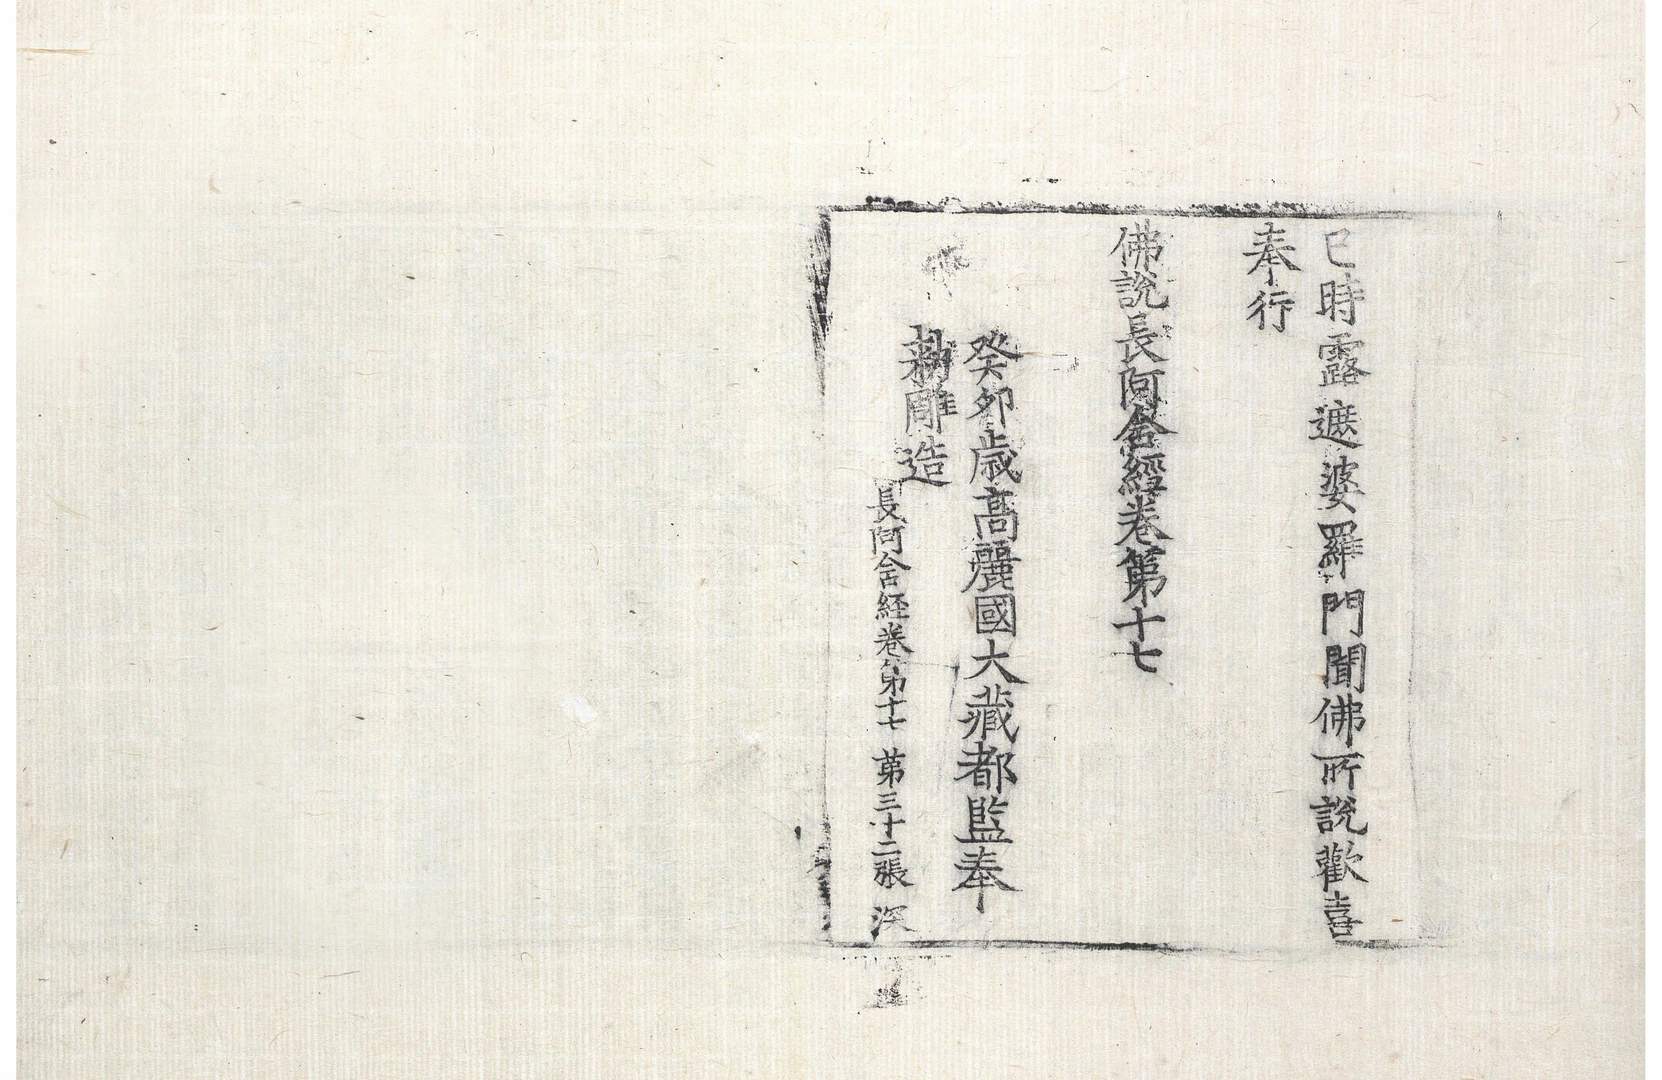 已時露遮婆羅門聞佛所說歡喜
奉行
佛說長阿含經卷第十七
癸卯歲高麗國大藏都監奉
勑雕造
長阿含経卷第十七 第三十二張 深